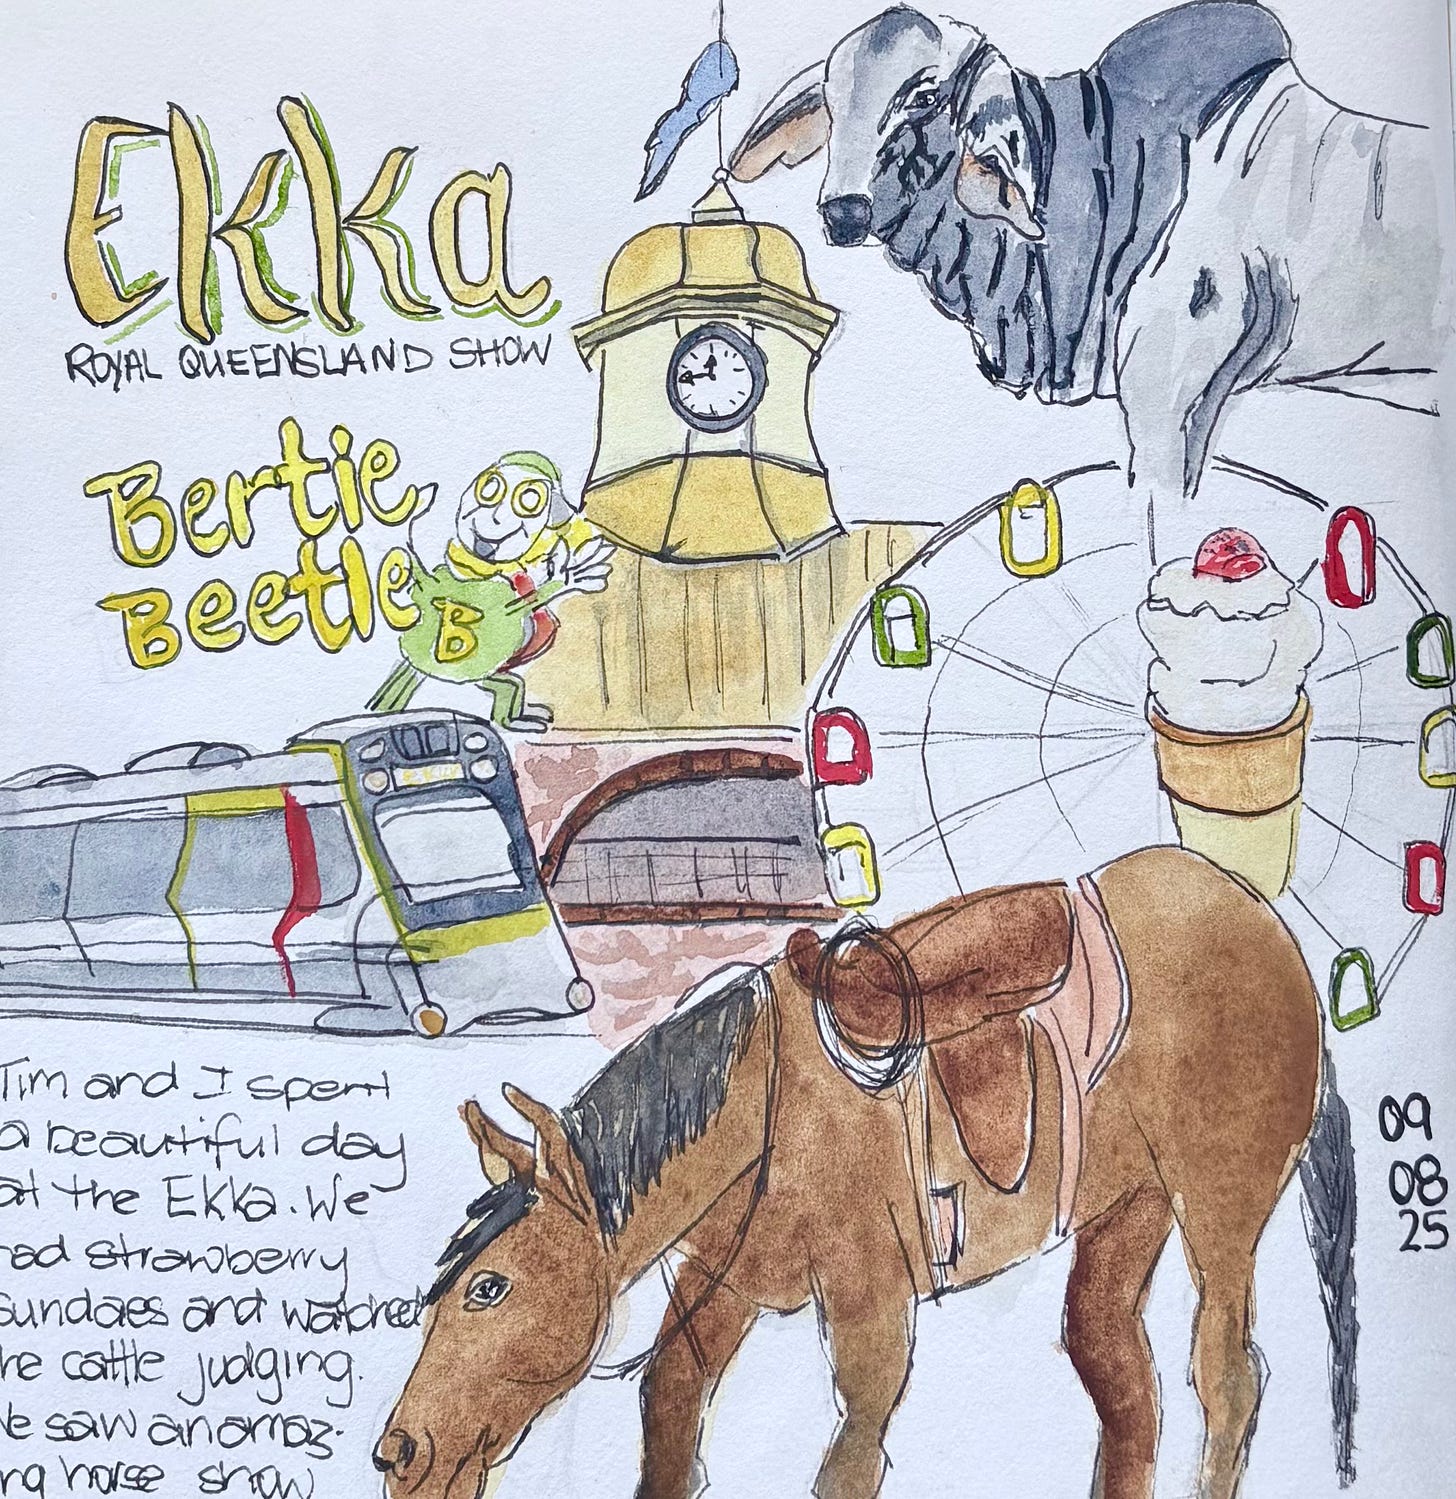 Ekka
ROYAL QUEENSLAND SHOW
Bertie
Beetle
B
Tim and I spent
a beautiful day
at the Ekka. We
had strawberry
sundaes and watched
the cattle judging.
We saw an amaz-
ing horse show
09
08
25